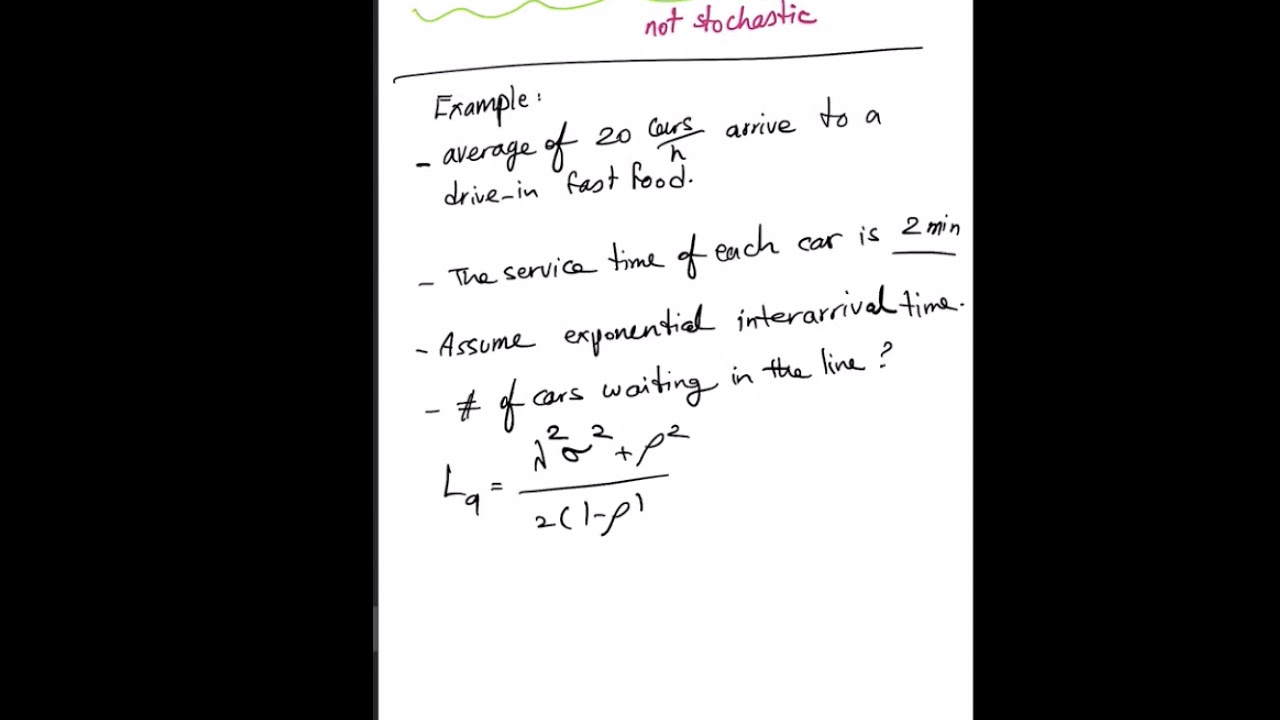 not stochastic
Example:
- average of 20 cars/h arrive to a
drive-in fast food.
- The service time of each car is 2 min
- Assume exponential interarrival time.
- # of cars waiting in the line?
Lq = (λ²σ² + ρ²) / 2(1-ρ)